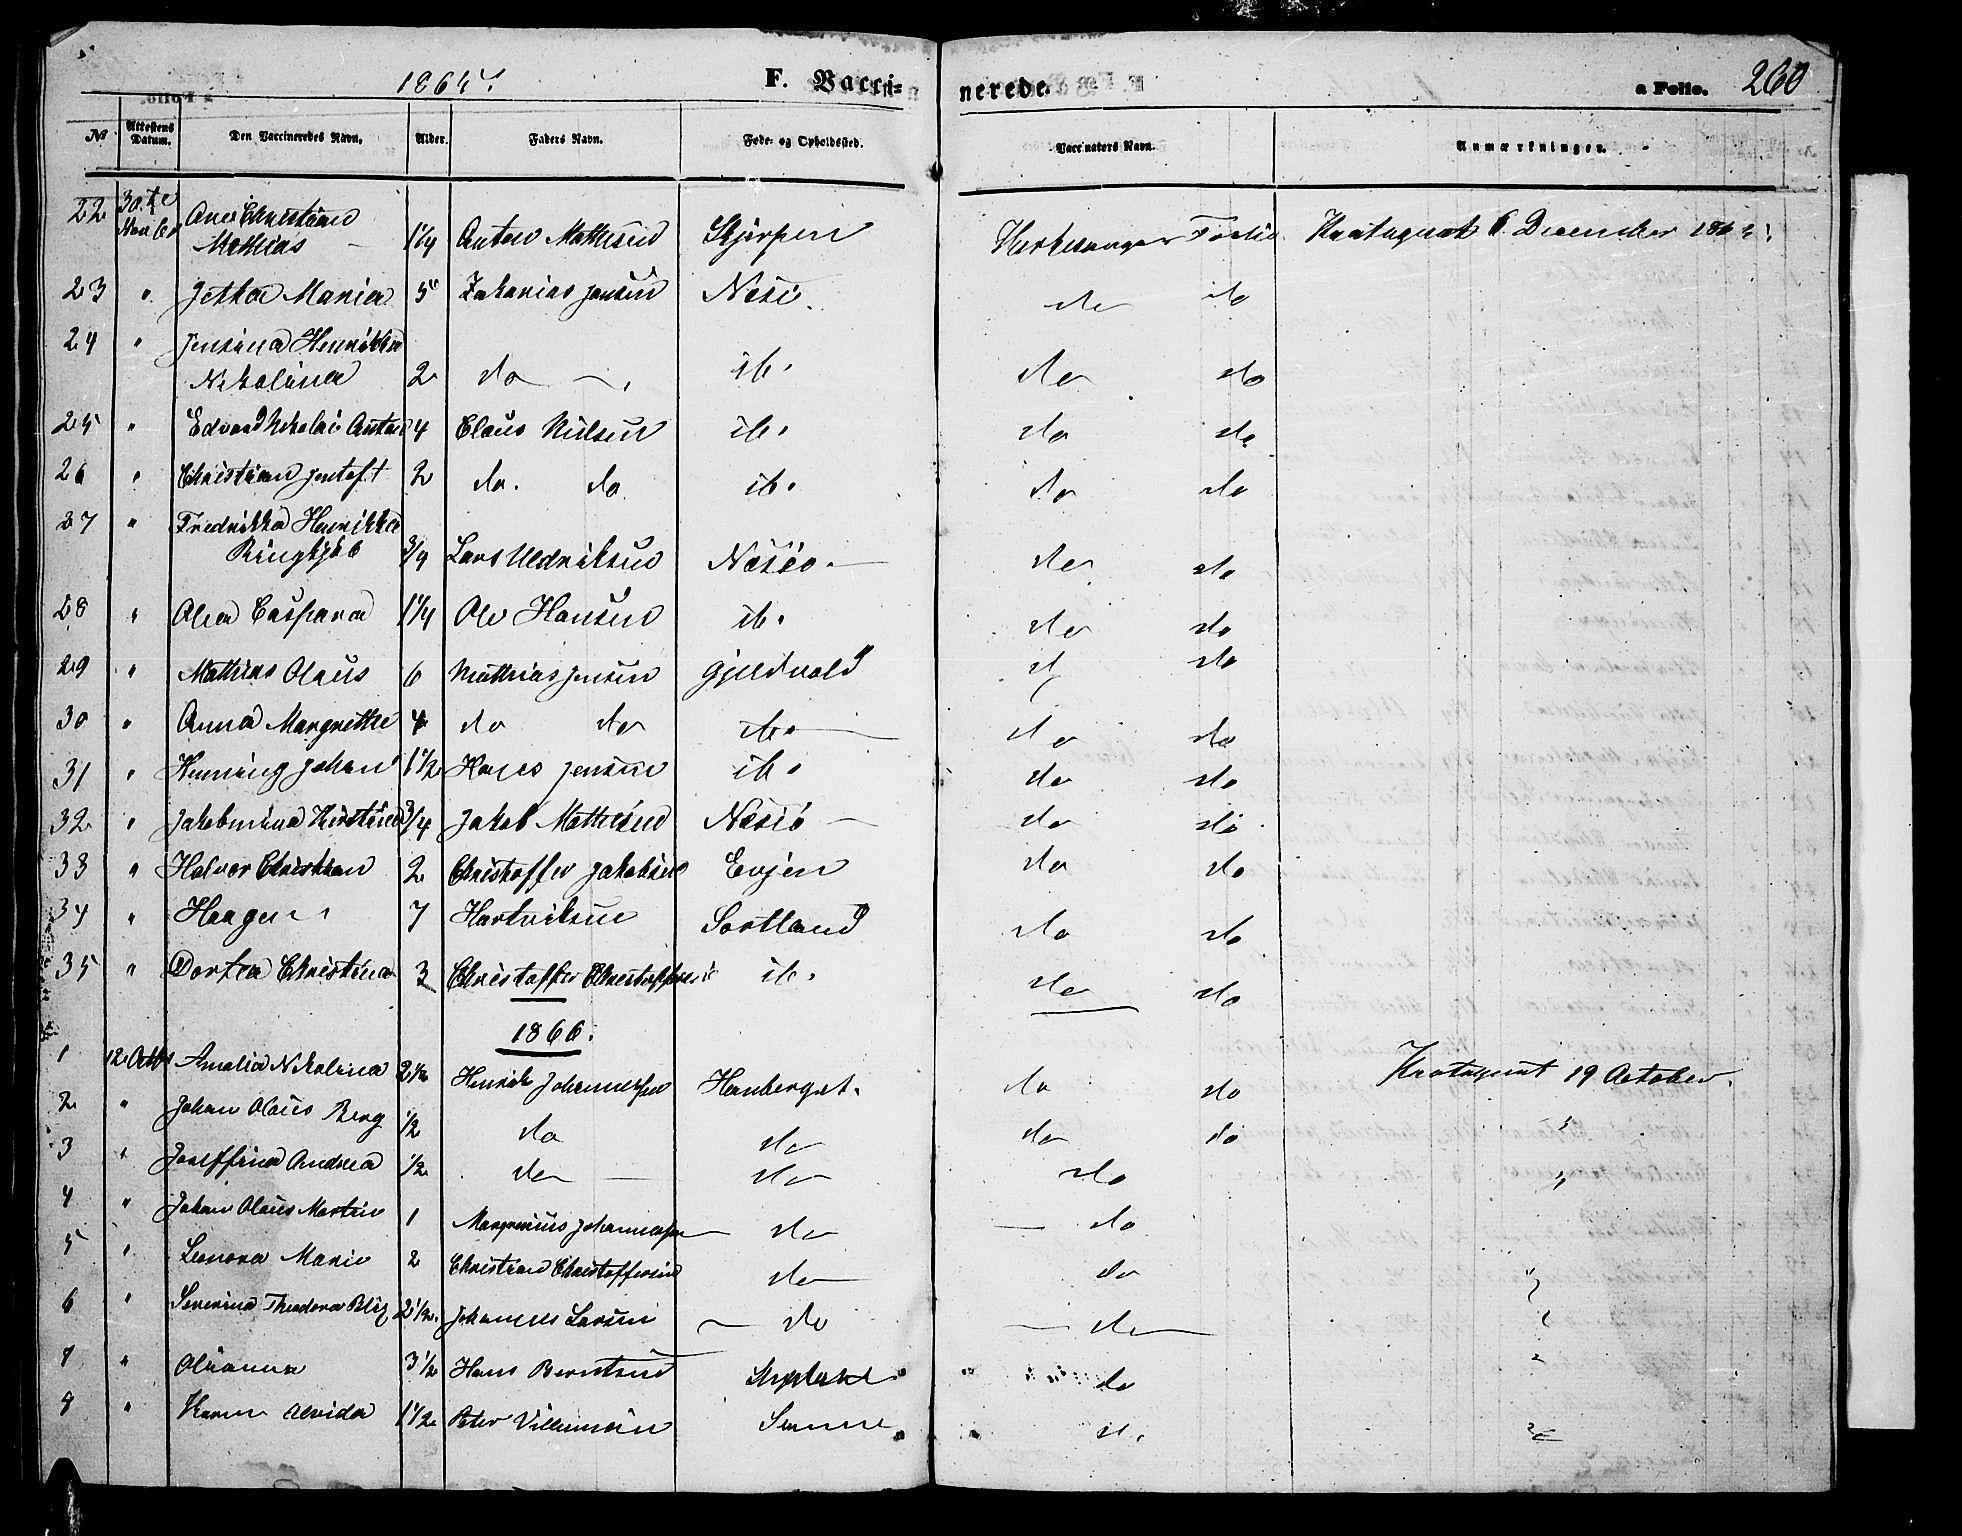 1865.
F. Vacci-
nerede.
a Folio. 260
No Attestens Datum. Den Vaccineredes Navn. Alder. Faders Navn. Føde- og Opholdssted. Vaccinators Navn. Anmærkninger.
22 30.te Novbr Christian
Mathias 1 1/4 Anton Mathisen Skjerpen Kirkesanger 6 December
23 " Jetta Maria 5 Zakarias Jensen do do
24 " Jensina Henrikka
Nikolina 2 do ib. do do
25 " Edvard Nikolai Anton 4 Claus Nielsen ib. do do
26 " Christian Jentoft 2 do. do ib. do do
27 " Fredrikka Henrikka
3/4 Lars Uldriksen Næsøe do do
28 " Olea Caspara 1 1/4 Ole Hansen ib. do do
29 " Mathias Olaus 6 Mathias Jensen Gjeldvold d do
30 " Anna Margrethe 4 do do ib. do do
31 " Henning Johan 1 1/2 Hans Jensen ib. do do
32 " Jakobmina Kirstine 3/4 Jakob Mathisen Næsiø do do
33 " Halvor Christian 2 Christoffer Jakobsen Evjen do do
34 " Haagen 7 Hartviksen Sortland do do
35 " Dortea Christina 3 Christoffer Christoffersen ib. do do
1866.
1 12 Octbr Amalia Nikolina 2 1/2 Henrik Johannessen do do 19 October.
2 " Johan Olaus Berg 1/2 do do do do "
3 " Joseffina Andrea 1/2 do do do "
4 " Johan Olaus Martin 1 Johannessen do do
5 " Leonora Marie 2 Christian Christoffersen do do "
6 " Severina Theodora 2 1/2 Johannes Larsen do do "
7 " Olianna 3 1/2 Hans Berntsen do "
8 " Karen Alvida 1 1/2 Peter Villumsen d. "